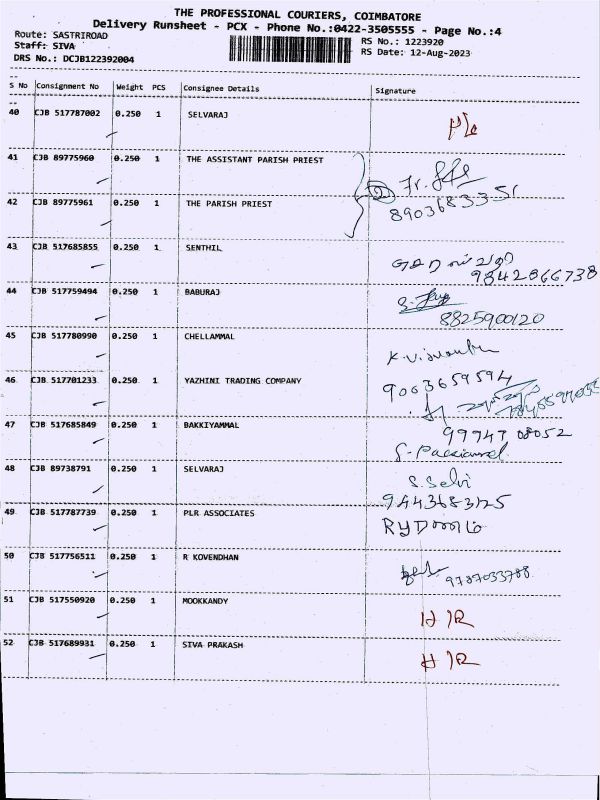 THE PROFESSIONAL COURIERS, COIMBATORE
Delivery Runsheet - PCX - Phone No.:0422-3505555 - Page No.:4
Route: SASTRIROAD
RS No.: 1223920
Staff: SIVA
RS Date: 12-Aug-2023
DRS No.: DCJB122392004
S No Consignment No Weight PCS Consignee Details Signature
40 CJB 517787002 0.250 1 SELVARAJ
41 CJB 89775960 0.250 1 THE ASSISTANT PARISH PRIEST
42 CJB 89775961 0.250 1 THE PARISH PRIEST
8903683351
43 CJB 517685855 0.250 1 SENTHIL
9842866738
44 CJB 517759494 0.250 1 BABURAJ
8825900120
45 CJB 517780990 0.250 1 CHELLAMMAL
46 CJB 517701233 0.250 1 YAZHINI TRADING COMPANY
9003659594
47 CJB 517685849 0.250 1 BAKKIYAMMAL
99947 08052
48 CJB 89738791 0.250 1 SELVARAJ S. Selvi
9443683125
49 CJB 517787739 0.250 1 PLR ASSOCIATES
50 CJB 517756511 0.250 1 R KOVENDHAN 9787033788
51 CJB 517550920 0.250 1 MOOKKANDY
52 CJB 517689931 0.250 1 SIVA PRAKASH